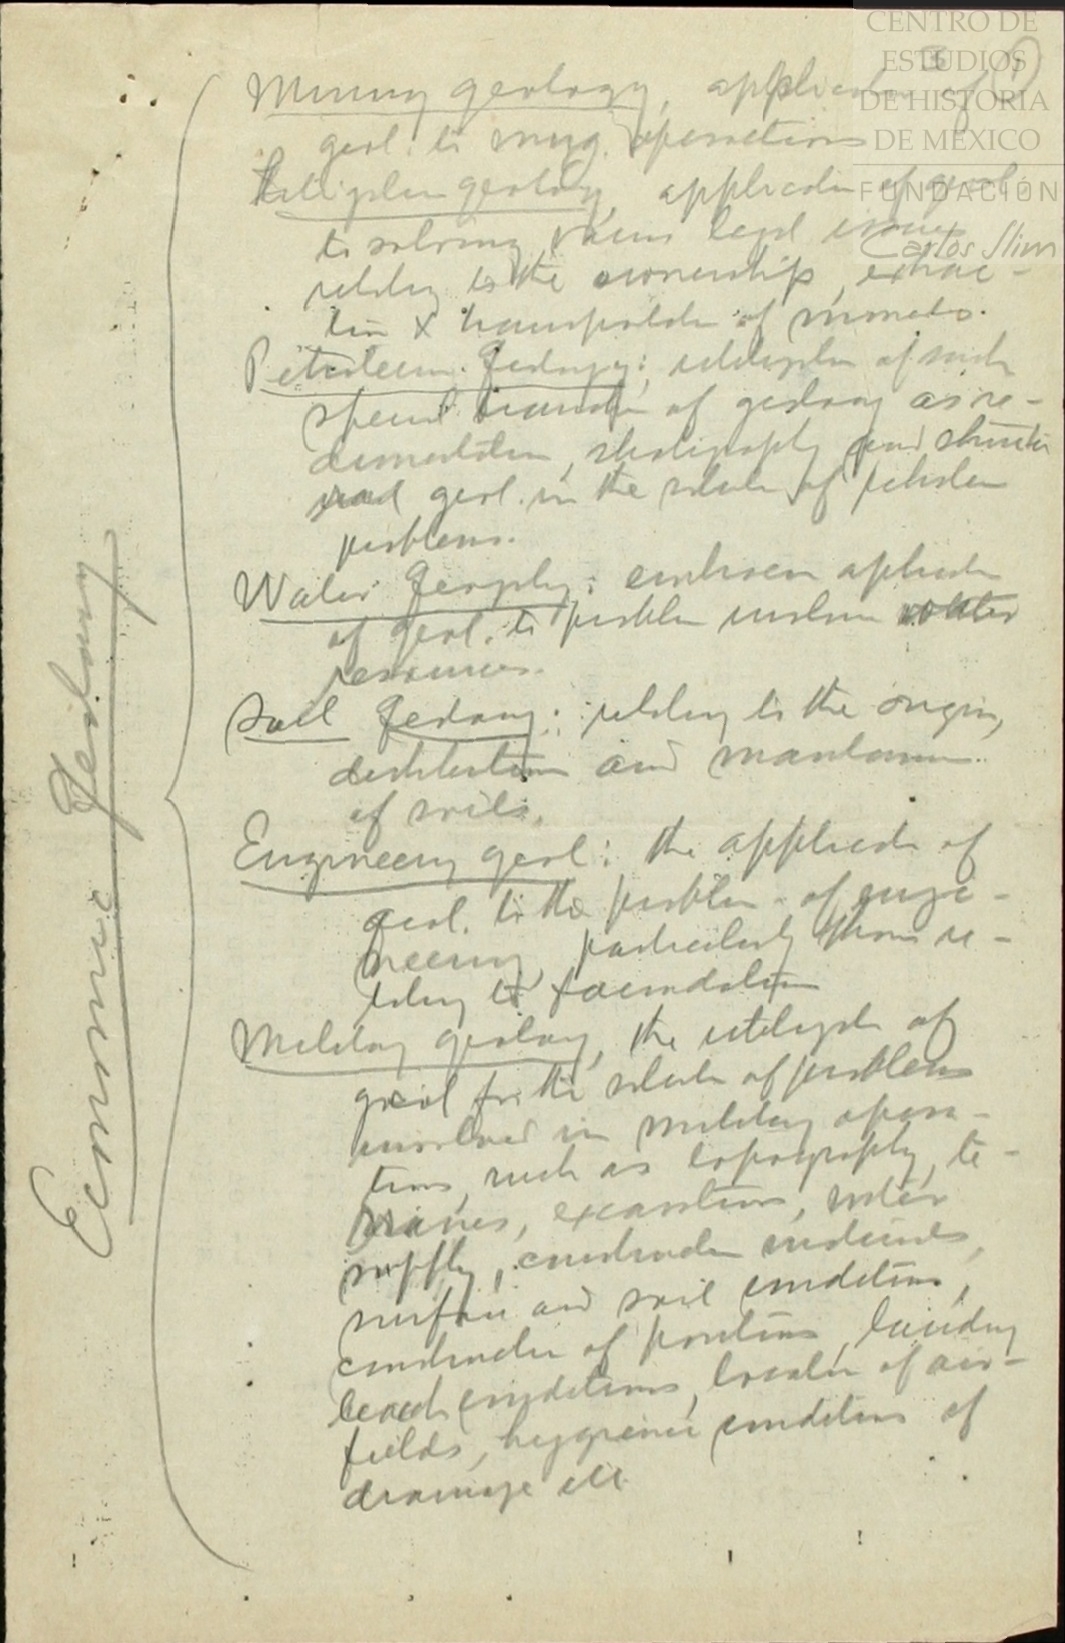 CENTRO DE
ESTUDIOS
DE HISTORIA
DE MEXICO
FUNDACIÓN
Carlos Slim
Economic Geology
Mining geology, application of
geol. to mng. operations
geology, application of geol.
to solving legal issues
relating to the ownership, extrac-
tion & transportation of minerals.
Petroleum Geology: utilization of such
special branches of geology as se-
dimentation, stratigraphy and structu
ral geol. in the solution of petroleum
problems.
Water : embraces application
of geol. to problems water
resources.
Soil Geology: relating to the origin,
distribution and maintenance
of soils.
Engineering geol: the application of
geol. to the problems of engi-
neering, particularly those re-
lating to foundations
Military geology, the utilization of
geol for the solution of problems
involved in military opera-
tions, such as topography, te-
rraines, excavations, water
supply, construction materials,
surface and soil conditions,
construction of positions, landing
beach conditions, location of air-
fields, hygienic conditions of
drainage etc